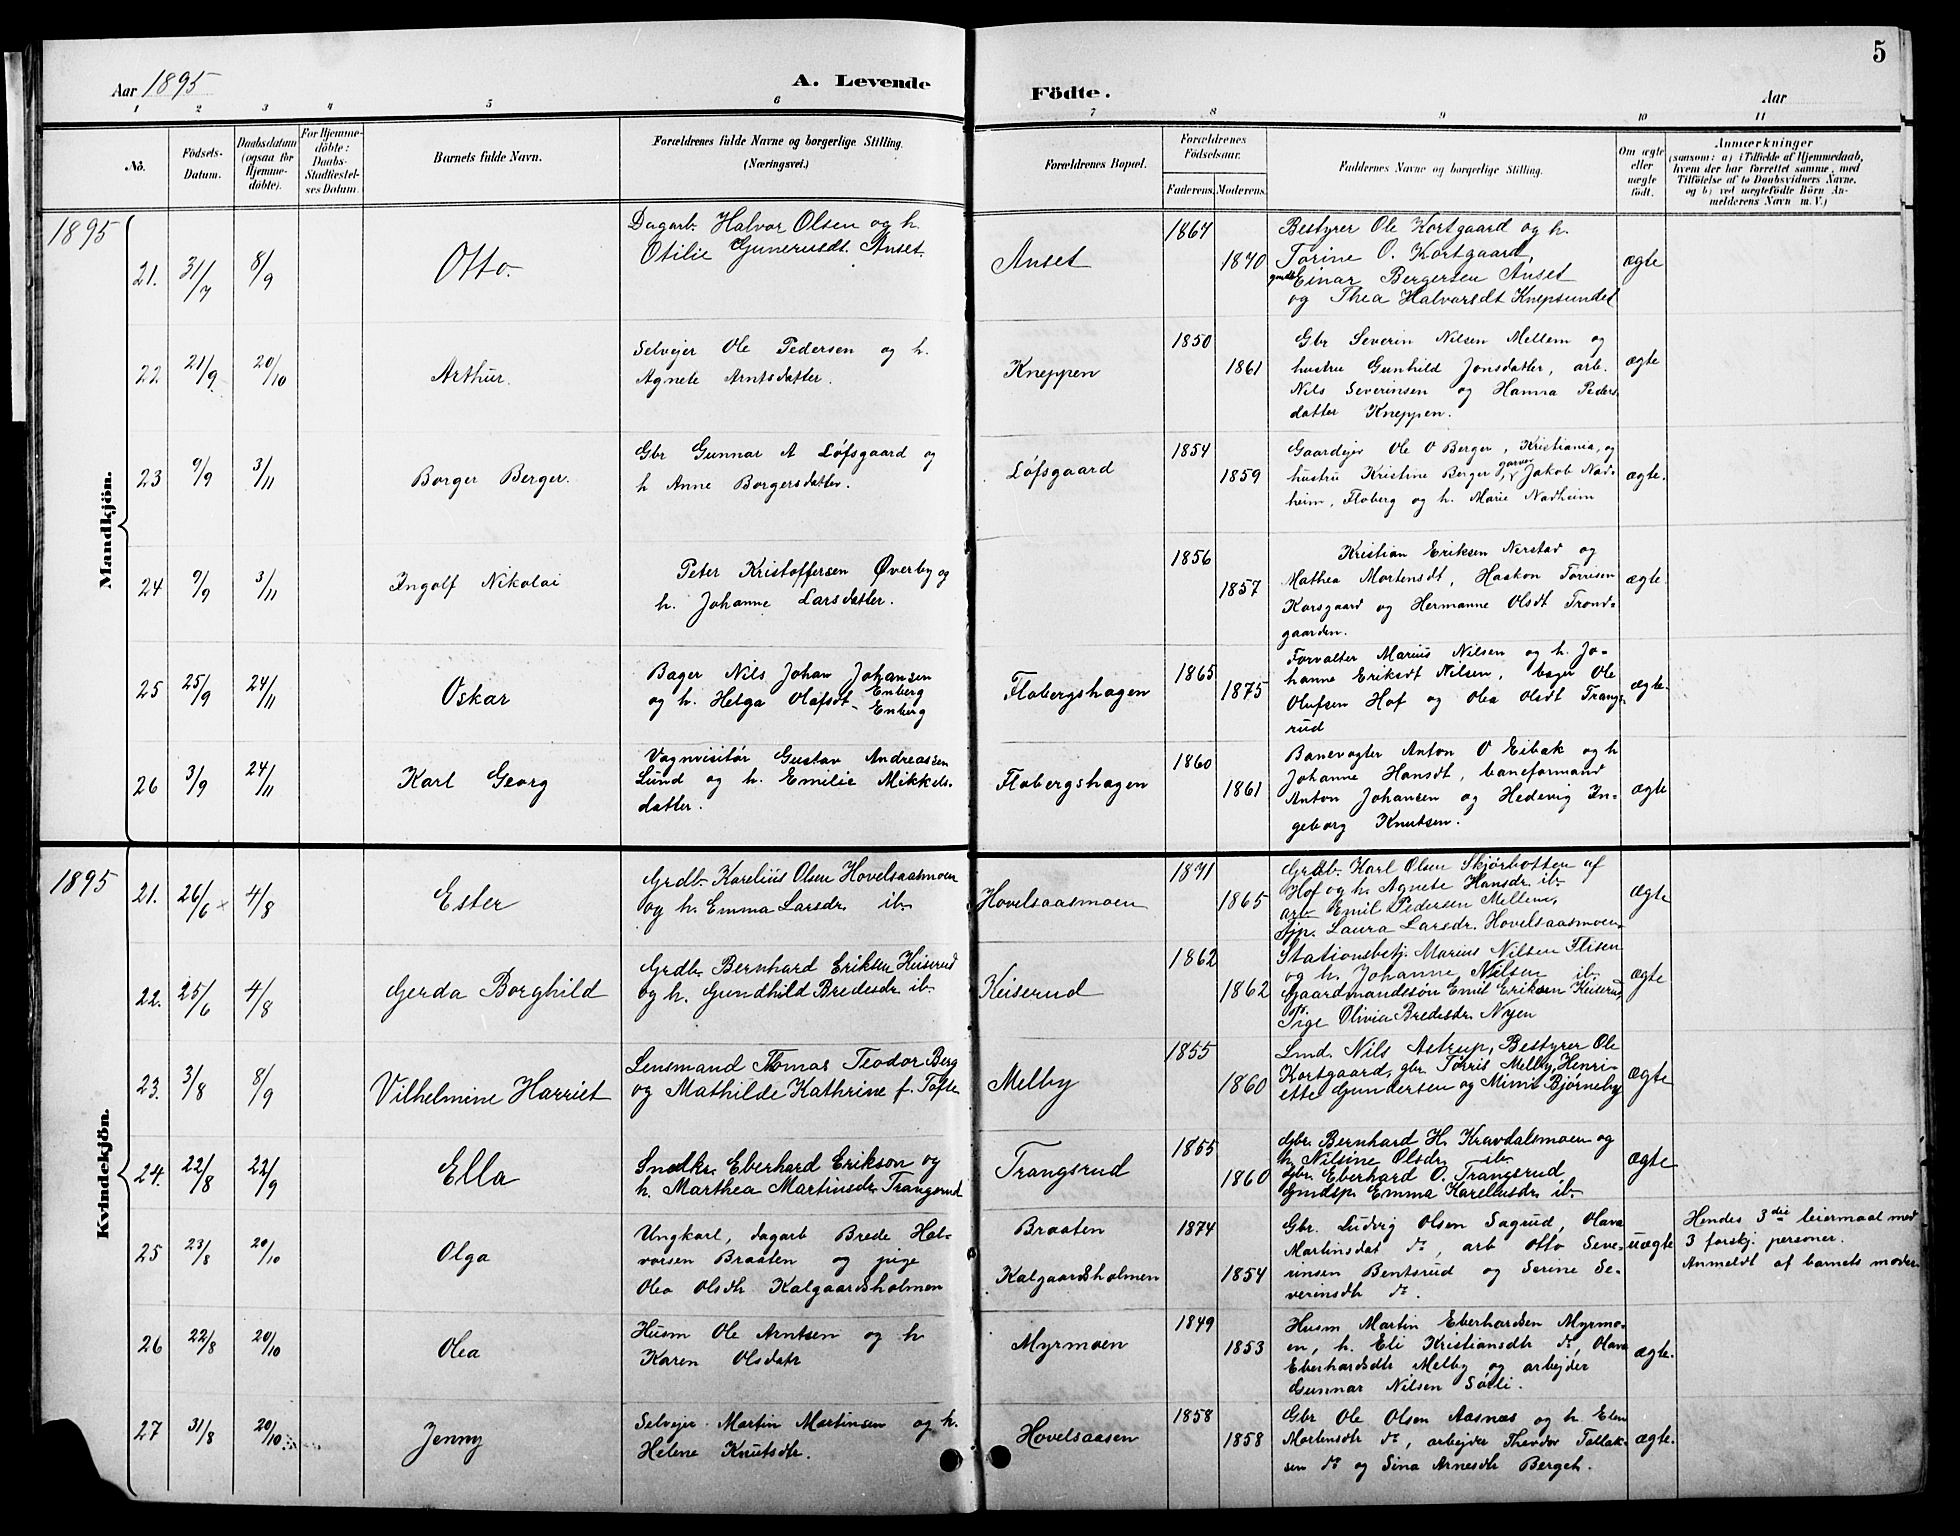 5
Aar 1895
A. Levende
Födte.
Aar
1 2 3 4 5 6 7 8 9 10 11
No.
Födsels-
Datum.
Daabsdatum
(ogsaa for
Hjemme-
døbte).
For Hjemme-
døbte:
Daabs-
Stadfæstel-
ses Datum.
Barnets fulde Navn.
Forældrenes fulde Navne og borgerlige Stilling.
(Næringsvei.)
Forældrenes Bopæl.
Forældrenes
Födselsaar.
Faderens. Moderens.
Faddernes Navne og borgerlige Stilling.
Om ægte
eller
uægte
født.
Anmærkninger
(saasom: a) i Tilfælde af Hjemmedaab,
hvem der har forrettet samme, med
Tilføielse af to Daabsvidners Navne,
og b) ved uægtefödte Börn An-
melderens Navn m. V.)
Mandkjön.
1895
21. 31/7 8/9 Otto.
Dagarb. Halvor Olsen og h.
Otilie Gunerusdt. Anset.
Anset
1867
1870
Bestyrer Ole Kortgaard og h.
Torine O. Kortgaard,
gmds. Einar Bergersen Anset
og Thea Halvorsdt Knepsundet
ægte
22 21/9 20/10 Arthur.
Selvejer Ole Pedersen og h.
Agnete Arntsdatter.
Kneppen
1850
1861
Gbr Severin Nilsen Mellem og
hustru Gunhild Jonsdatter, arb.
Nils Severinsen og Hanna Peders-
datter Kneppen.
ægte
23 9/9 3/11 Borger Berger.
Gbr Gunnar A Løfsgaard og
h Anne Borgersdatter.
Løfsgaard
1854
1859
Gaardejer Ole O Berger, Kristiania, og
hustru Kristine Berger, garver Jakob Nad-
heim, Floberg og h. Marie Nadheim
ægte.
24 9/9 3/11 Ingolf Nikolai
Peter Kristoffersen Øverby og
h. Johanne Larsdatter.
1856
1857
Kristian Eriksen Nerstad og
Mathea Mortensdt, Haakon Torrisen
Korsgaard og Hermanne Olsdt Trond-
gaarden.
ægte.
25 25/9 24/11 Oskar
Bager Nils Johan Johansen
Enberg
og h. Helga Olafsdt. Enberg
Flobergshagen
1865
1875
Forvalter Marius Nilsen og h. Jo-
hanne Eriksdt Nilsen, bager Ole
Olufsen Hof og Olea Olsdt Trang-
rud
ægte.
26 3/9 24/11 Karl Georg
Vognvisitør Gustav Andreassen
Lund og h. Emilie Mikkels-
datter.
Flobergshagen
1860
1861
Banevogter Anton O Eibak og h
Johanne Hansdt, baneformand
Anton Johansen og Hedevig In-
geborg Knutsen.
ægte
Kvindekjön.
1895
21. 26/6 4/8 Ester
Grdb. Karelius Olsen Hovelsaasmoen
og h. Emma Larsdr. ib.
Hovelsaasmoen
1871
1865
Grdb. Karl Olsen Skjørbotten af
Hof og h. Agnete Hansdr. ib.
arb Emil Pedersen Mellem,
Tjp. Laura Larsdr. Hovelsaasmoen
ægte
22. 25/6 4/8 Gerda Borghild
Grdb. Bernhard Eriksen Keiserud
og h. Gundhild Bredesdr. ib.
Keiserud
1862
1862
Stationsbetj. Marius Nilsen Flisen
og h. Johanne Nilsen ib.
Gaardmandssön Emil Eriksen Keiserud,
Pige Olivia Bredesdr. Nyen
ægte
23. 3/8 8/9 Vilhelmine Harriet
Lensmand Thomas Teodor Berg
og Mathilde Kathrine f. Tofte
Melby
1855
1860
Lmd. Nils Astrup, Bestyrer Ole
Kortgaard, gbr. Torris Melby, Henri-
ette Gundersen og Mimi Bjørneby
ægte
24. 22/8 22/9 Ella
Snedkr. Eberhard Erikson og
h. Marthea Martinsdr. Trangsrud
Trangsrud
1855
1860
Gbr. Bernhard H. Kravdalsmoen og
h. Nilsine Olsdr. ib.
Gbr. Eberhard O. Trangsrud,
Gmdsp. Emma Kareliusdr. ib.
ægte
25 23/8 20/10 Olga
Ungkarl, dagarb Brede Hal-
vorsen Braaten og pige
Olea Olsdtr Kalgaardsholmen
Braaten
Kalgaardsholmen
1874
1854
Gbr. Ludvig Olsen Sagrud, Olava
Martinsdat do, arb Otto Seve-
rinsen Bentsrud og Serine Se-
verensdtr do.
uægte
Hendes 3die leiermaal med
3 forskj. personer.
Anmeldt af barnets moder.
26 22/8 20/10 Olea
Husm Ole Arntsen og h
Karen Olsdatr
Myrmoen
1849
1853
Husm Martin Eberhardsen Myrmo-
en, h. Eli Kristiansdtr do, Olava
Eberhardsdtr Melby og arbejder
Gunnar Nilsen Sørli.
ægte.
27 31/8 20/10 Jenny
Selvejer Martin Martinsen og h.
Helene Knutsdtr.
Hovelsaasen
1858
1858
Gbr Ole Olsen Aasnæs og h. Elen
Mortensdtr do, arbejder Theodor Tollak-
sen do og Sina Arnesdtr Berget.
ægte.